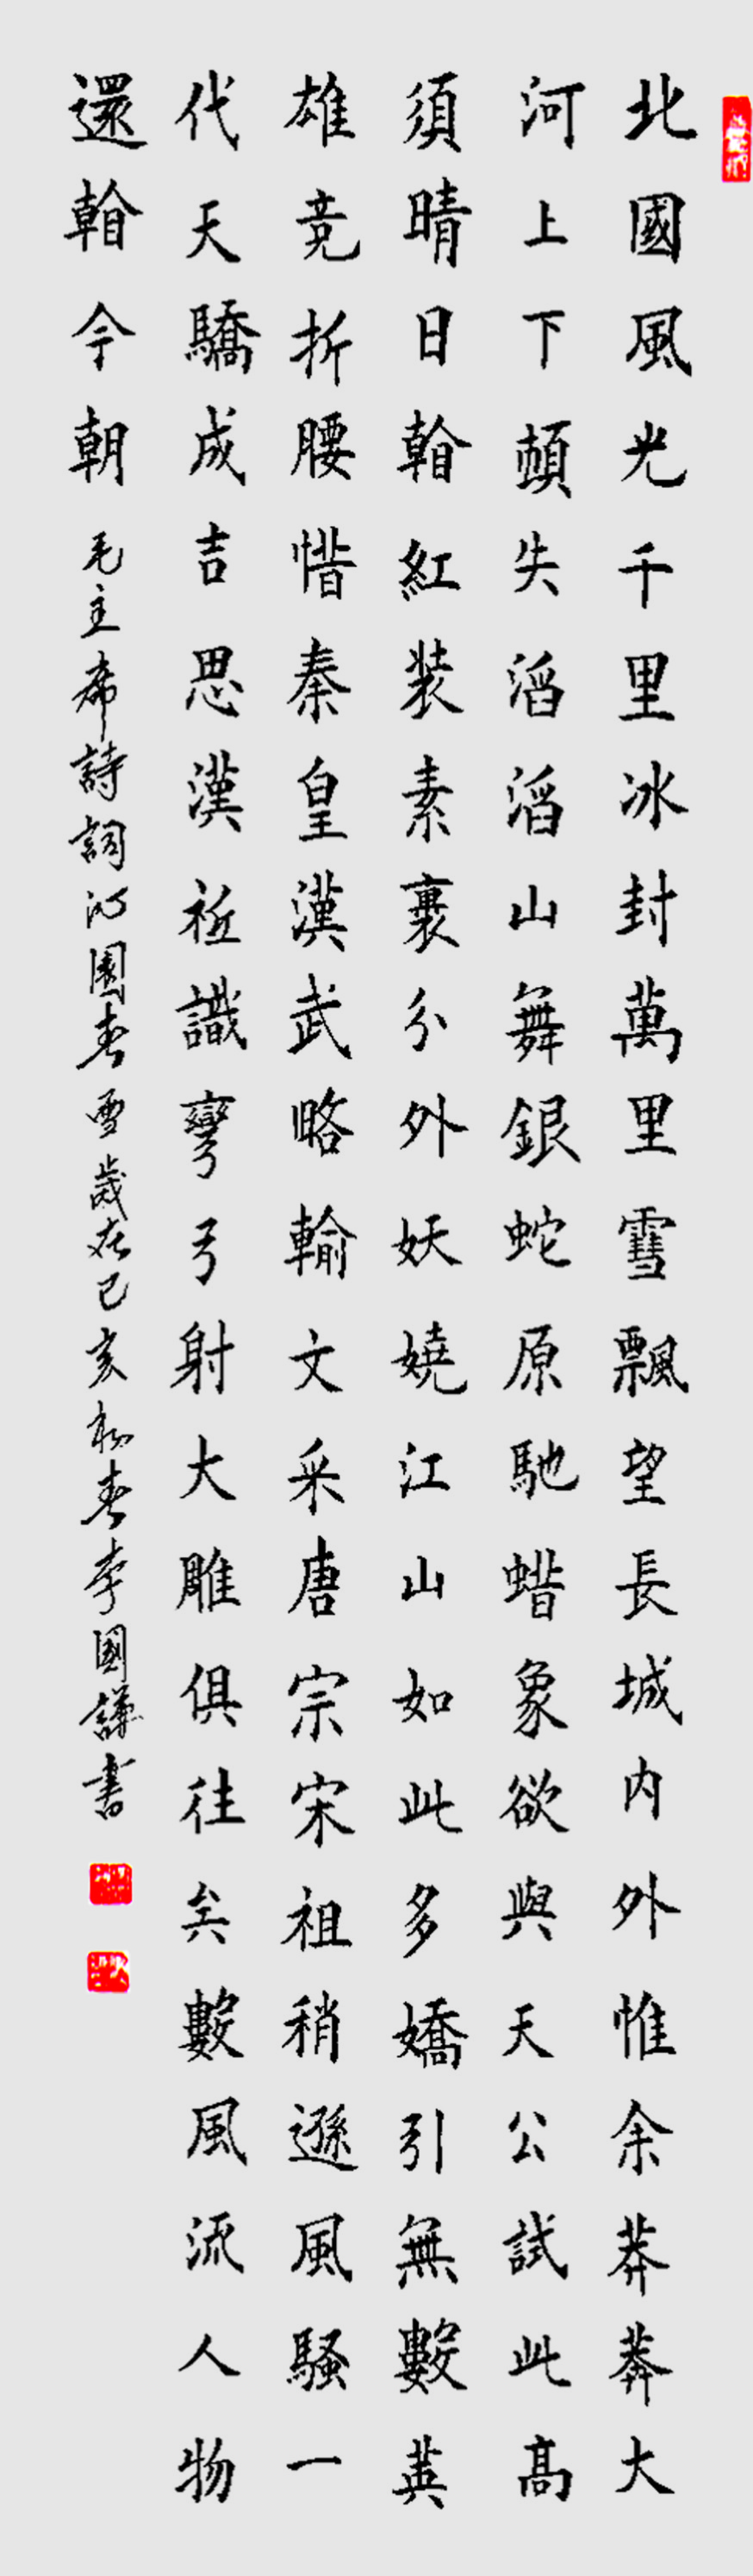 北國風光千里冰封萬里雪飄望長城内外惟余莽莽大
河上下頓失滔滔山舞銀蛇原馳蜡象欲與天公試此高
須晴日看紅装素裹分外妖嬈江山如此多嬌引無數英
雄竞折腰惜秦皇漢武略輸文采唐宗宋祖稍遜風騷一
代天驕成吉思漢祗識彎弓射大雕俱往矣數風流人物
還看今朝 毛主席詩詞沁園春雪歲在己亥初春李國謙書